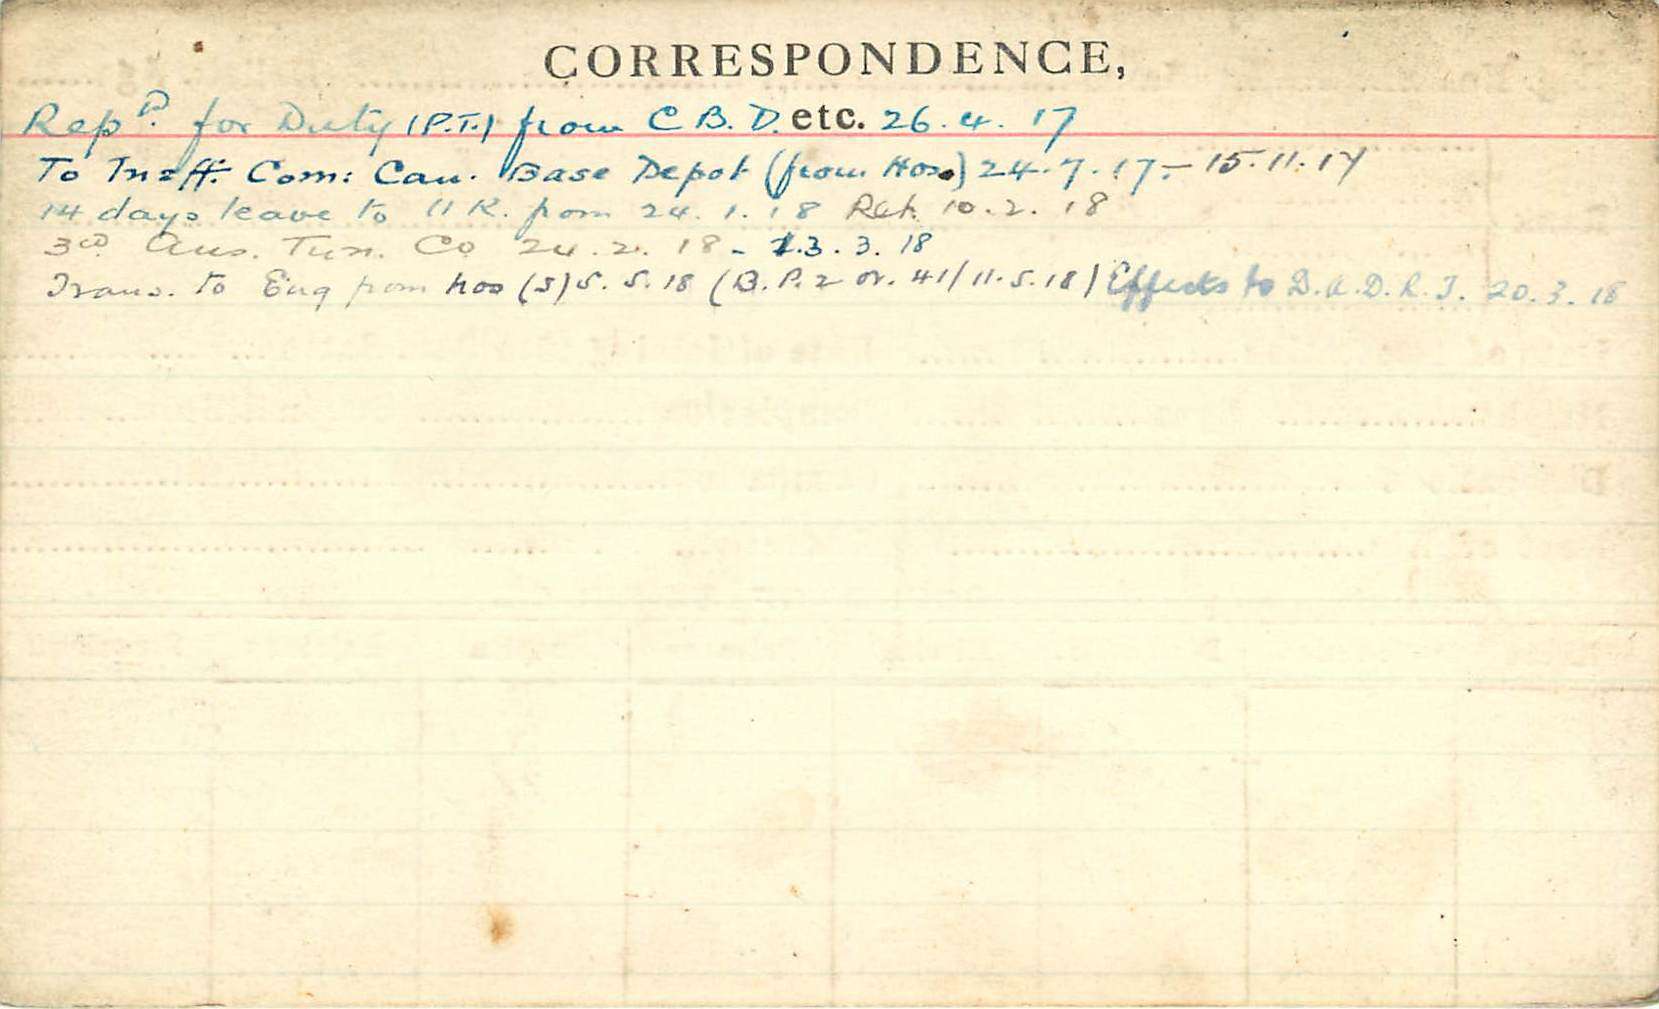 CORRESPONDENCE, etc.
Rep D. for Duty (P.T.) from C B. D. 26. 4. 17
To Ineff. Com: Can. Base Depot (from Hos.) 24. 7. 17. - 15. 11. 17
14 days leave to U K. from 24. 1. 18 Ret. 10. 2. 18
3rd Aus. Tun. Co 24. 2. 18 - 13. 3. 18
Trans. to Eng from hos (S) 5. 5. 18 (B. P. 2 Or. 41/11.5.18) Effects to D.A.D.R.T. 20. 3. 18